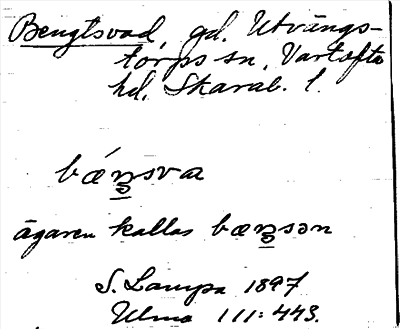 Bengtsvad, gd. Utvängs-
torps sn, Vartofta
hd. Skarab. l.
bǽŋsva
ägaren kallas bæŋsən
S. Lampa 1897
Ulma 111:443.